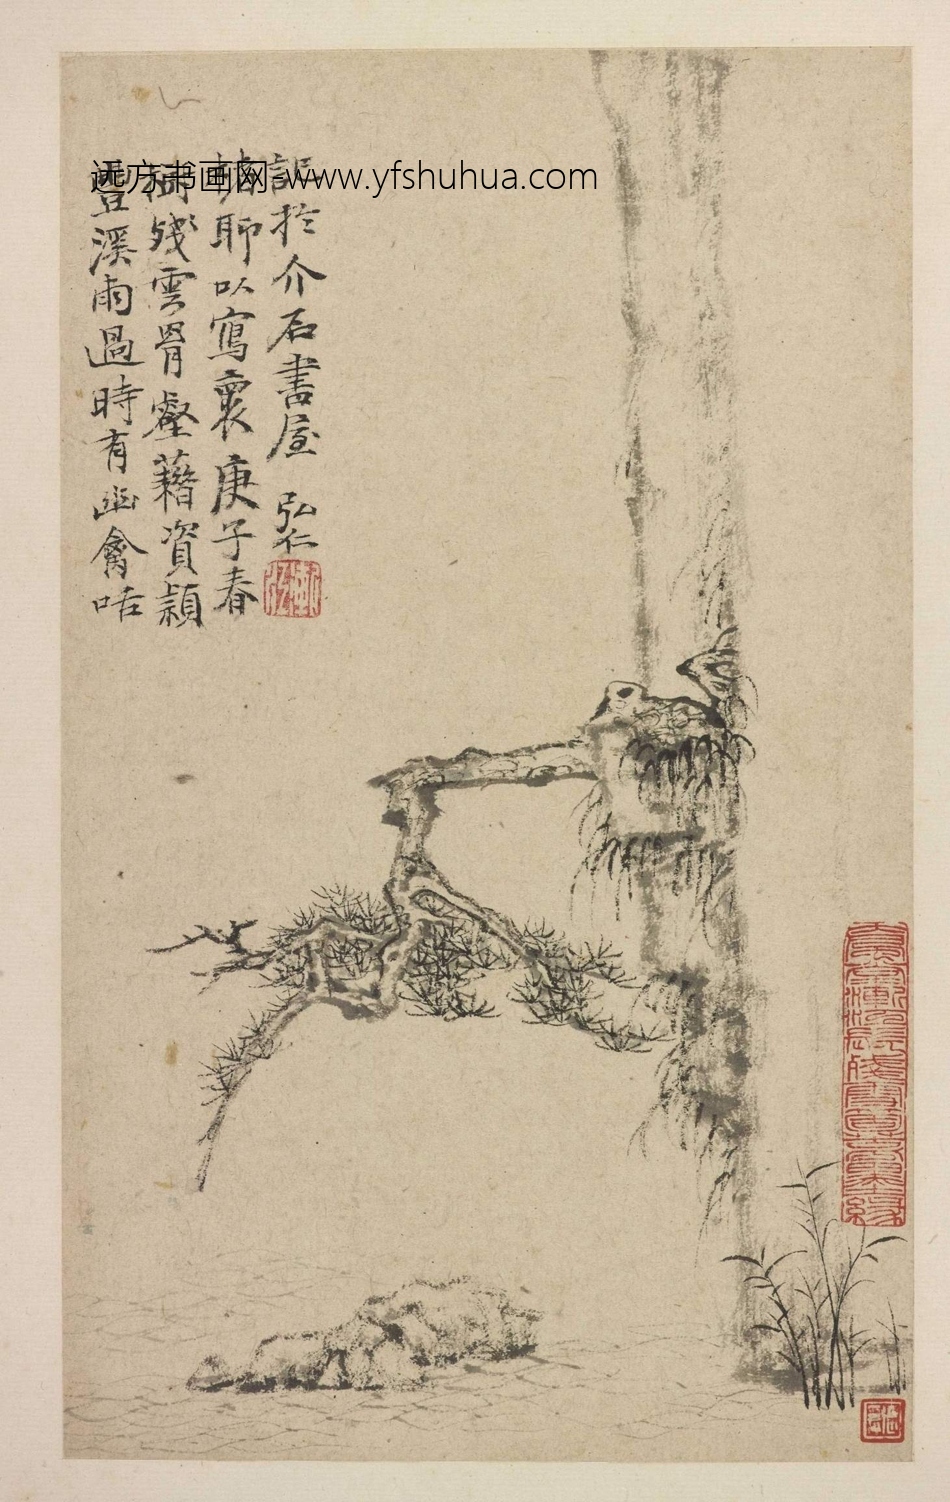 远方书画网-www.yfshuhua.com
豐溪雨過時有幽禽咶
殘雲罥壑藉資穎
聊以寫褱庚子春
記於介石書屋 弘仁